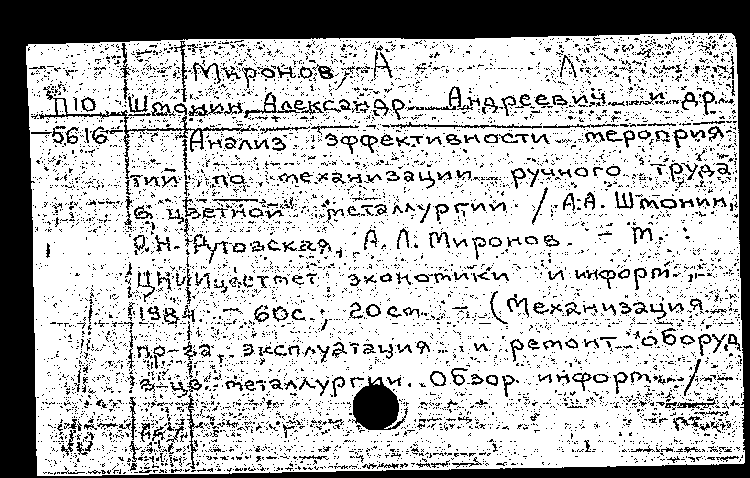 Миронов, А Л
П10 Шмонин, Александр Андреевич и др.
5616 Анализ эффективности мероприя
тий по механизации ручного труда
в цветной металлургии / А.А. Шмонин,
Н. Дутовская, А. Л. Миронов. – М. :
ЦНИИцветмет экономики и информ.,
1984 – 60с.; 20см. – (Механизация
пр-ва, эксплуатация и ремонт оборуд
в цв. металлургии. Обзор. информ. /